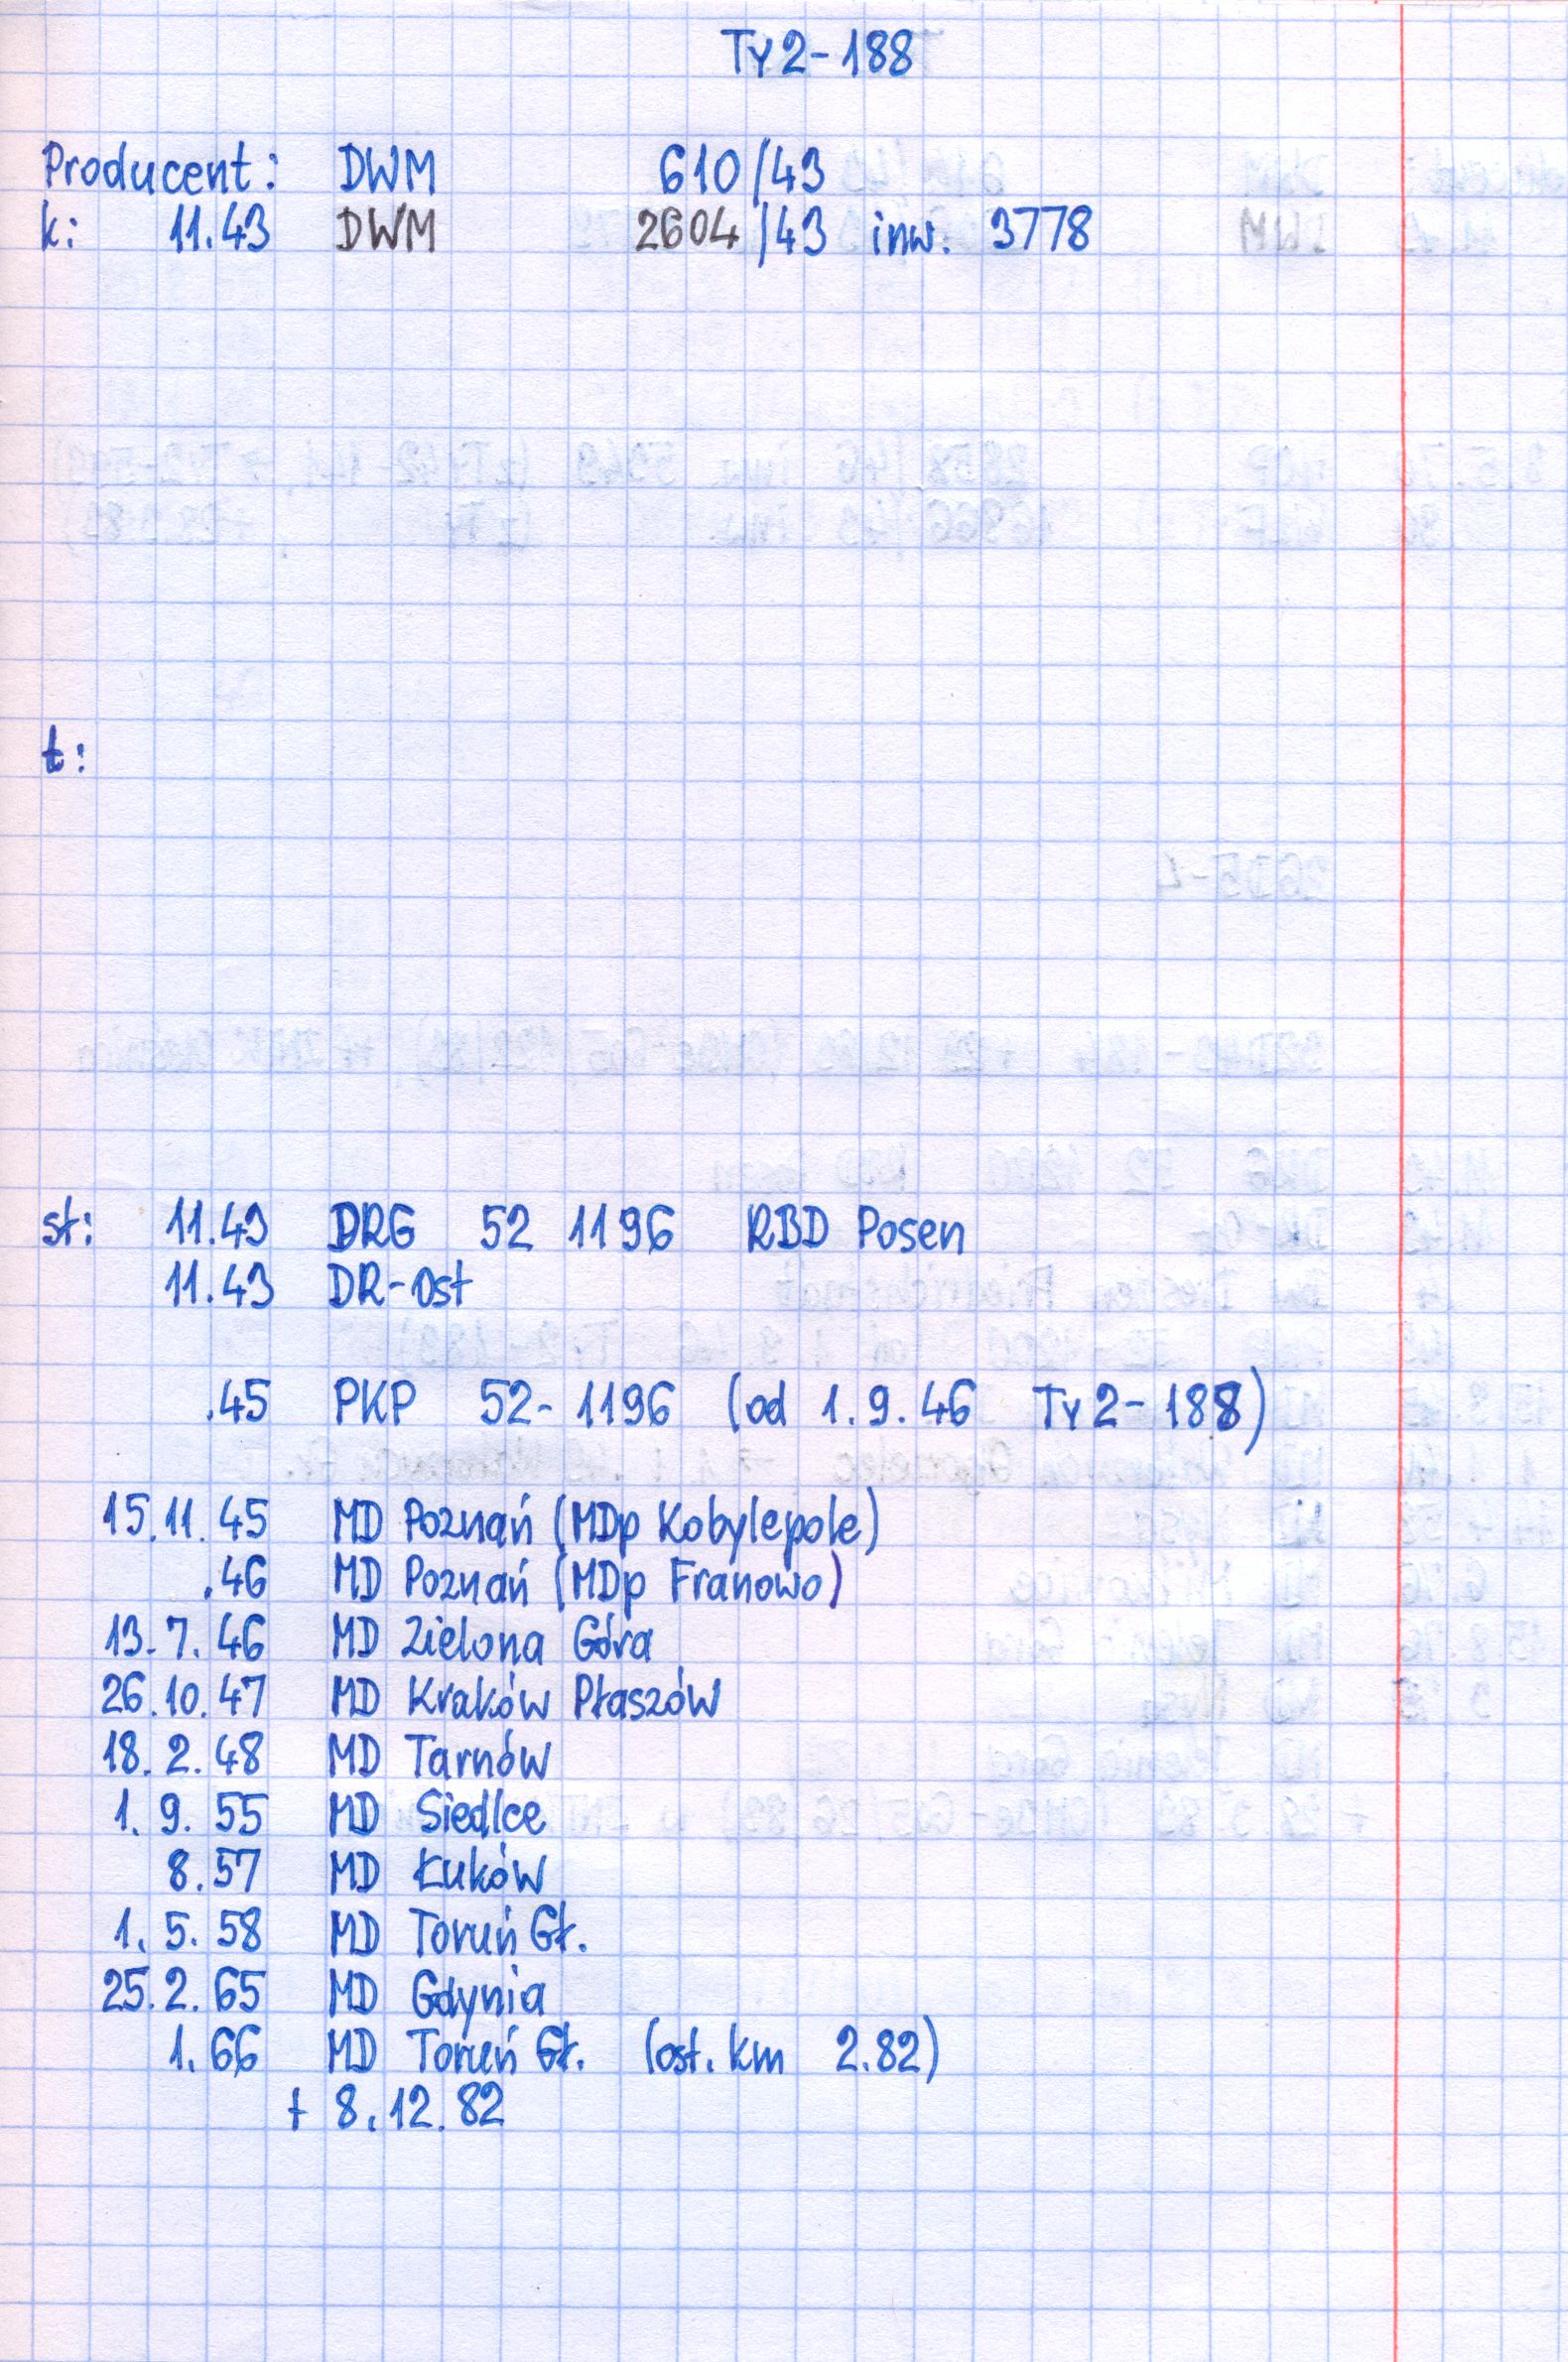 Ty2-188
Producent: DWM 610/43
k: 11.43 DWM 2604/43 inw. 3778
t:
st: 11.43 DRG 52 1196 RBD Posen
11.43 DR-Ost
.45 PKP 52-1196 (od 1.9.46 Ty2-188)
15.11.45 MD Poznań (MDp Kobylepole)
.46 MD Poznań (MDp Franowo)
13.7.46 MD Zielona Góra
26.10.47 MD Kraków Płaszów
18.2.48 MD Tarnów
1.9.55 MD Siedlce
8.57 MD Łuków
1.5.58 MD Toruń Gł.
25.2.65 MD Gdynia
1.66 MD Toruń Gł. (ost. km 2.82)
+ 8.12.82